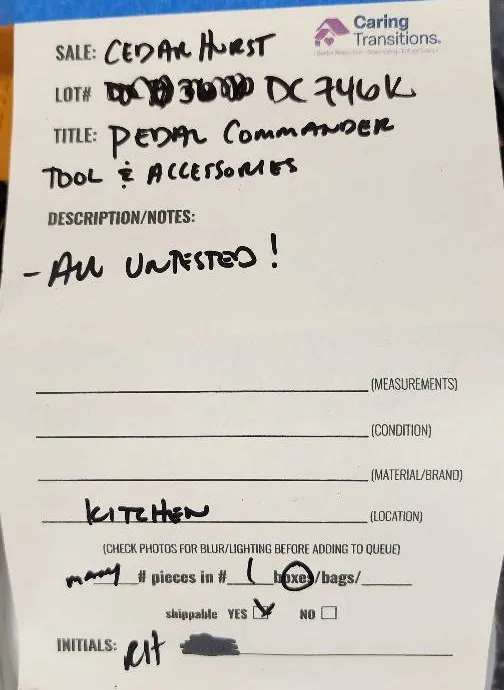 Caring
Transitions.
SALE: CEDARHURST
LOT# DC746K
TITLE: PEDAL COMMANDER
TOOL & ACCESSORIES
DESCRIPTION/NOTES:
- All UNTESTED!
(MEASUREMENTS)
(CONDITION)
(MATERIAL/BRAND)
KITCHEN (LOCATION)
(CHECK PHOTOS FOR BLUR/LIGHTING BEFORE ADDING TO QUEUE)
many # pieces in # 1 boxes/bags/
shippable YES NO
INITIALS: RH